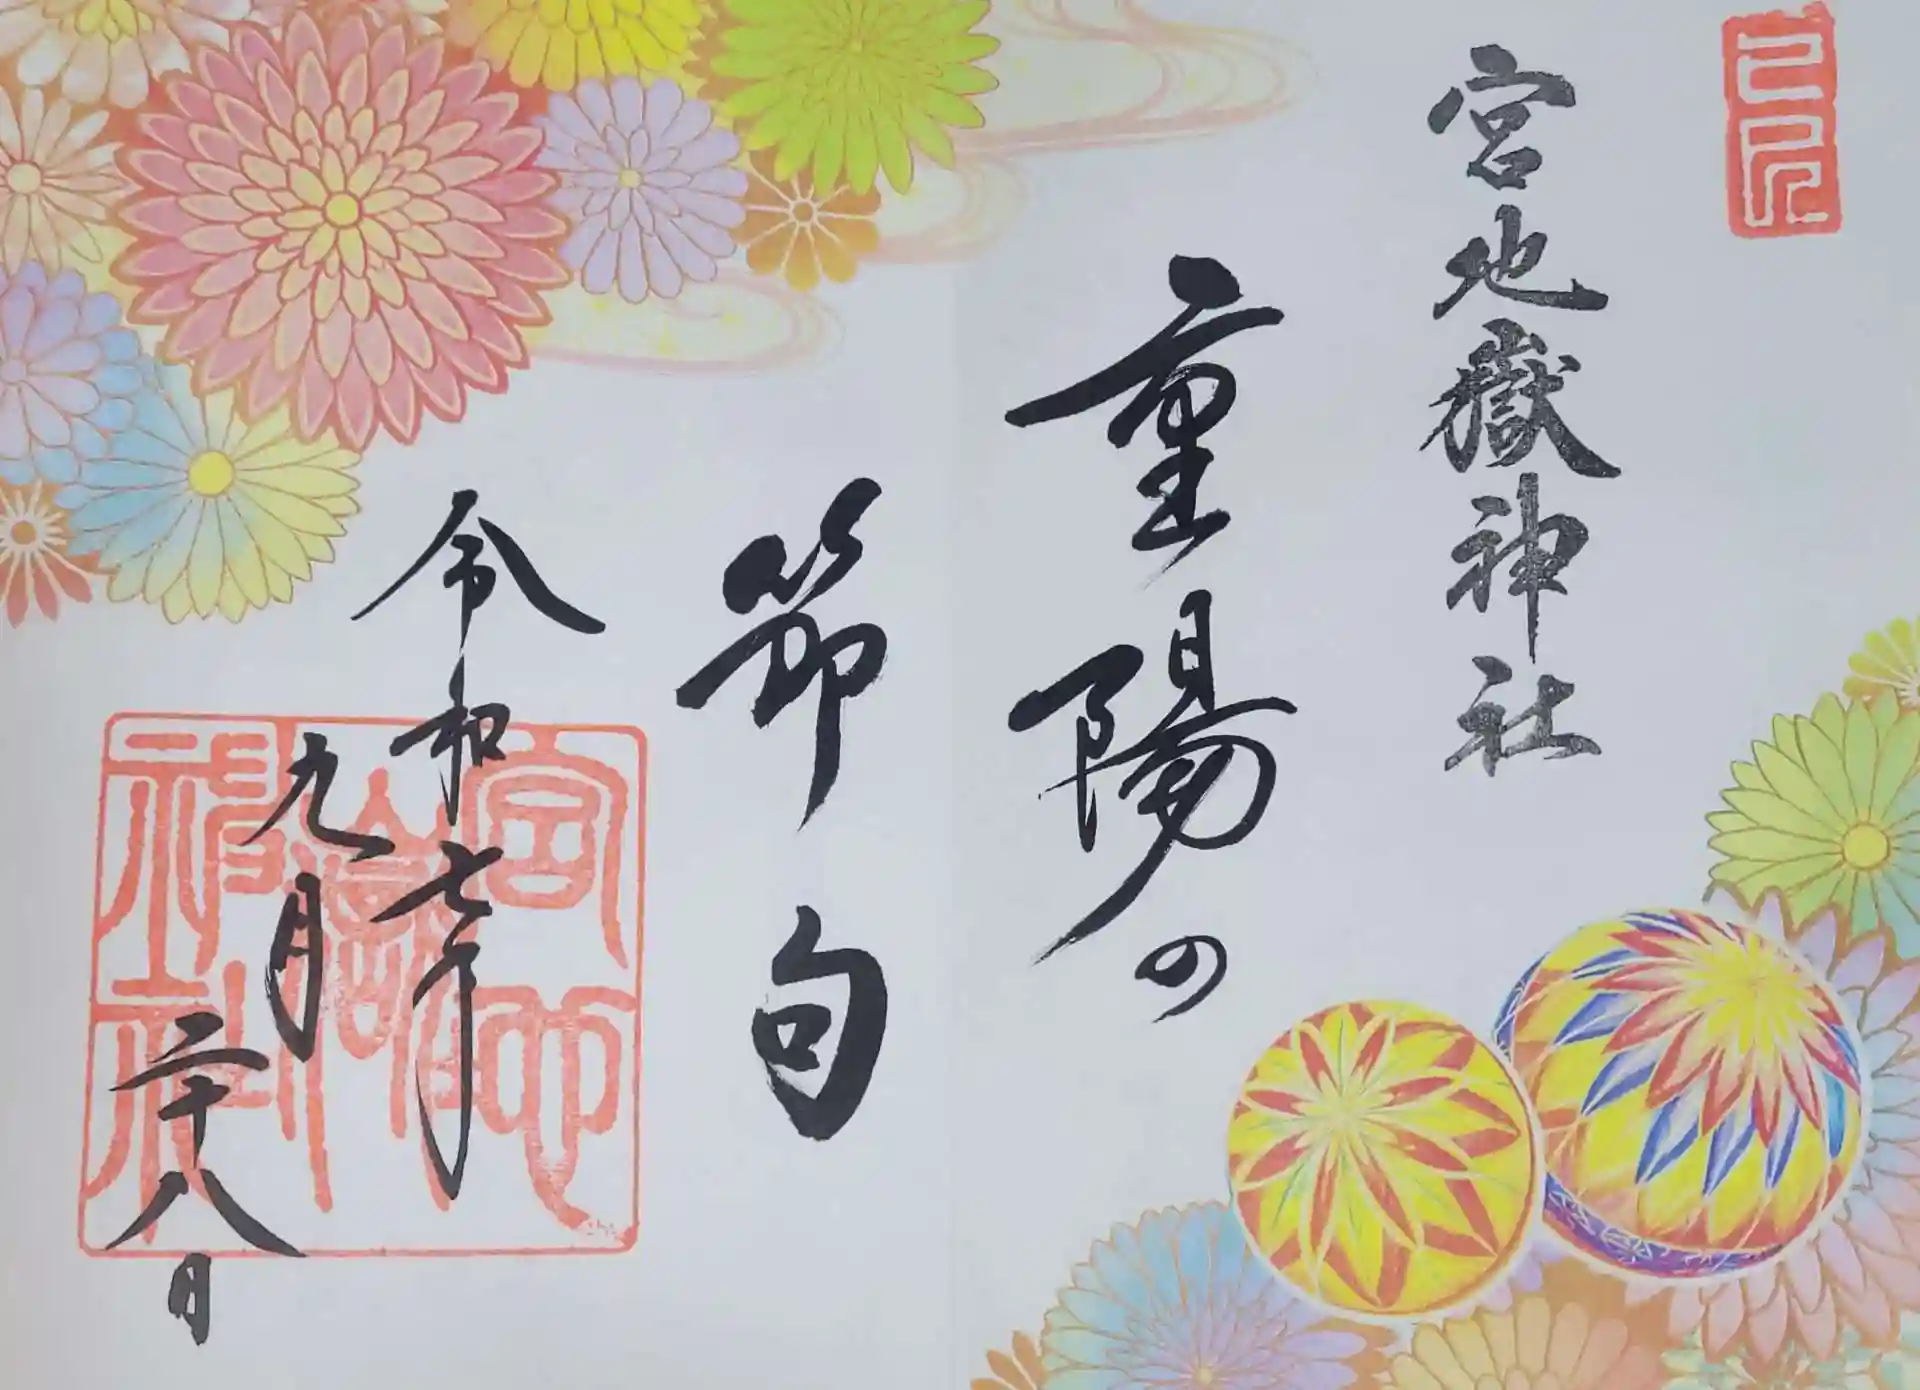 己巳
宮地嶽神社
重陽の
節句
令和七年
九月二十八日
宮地
嶽
神社